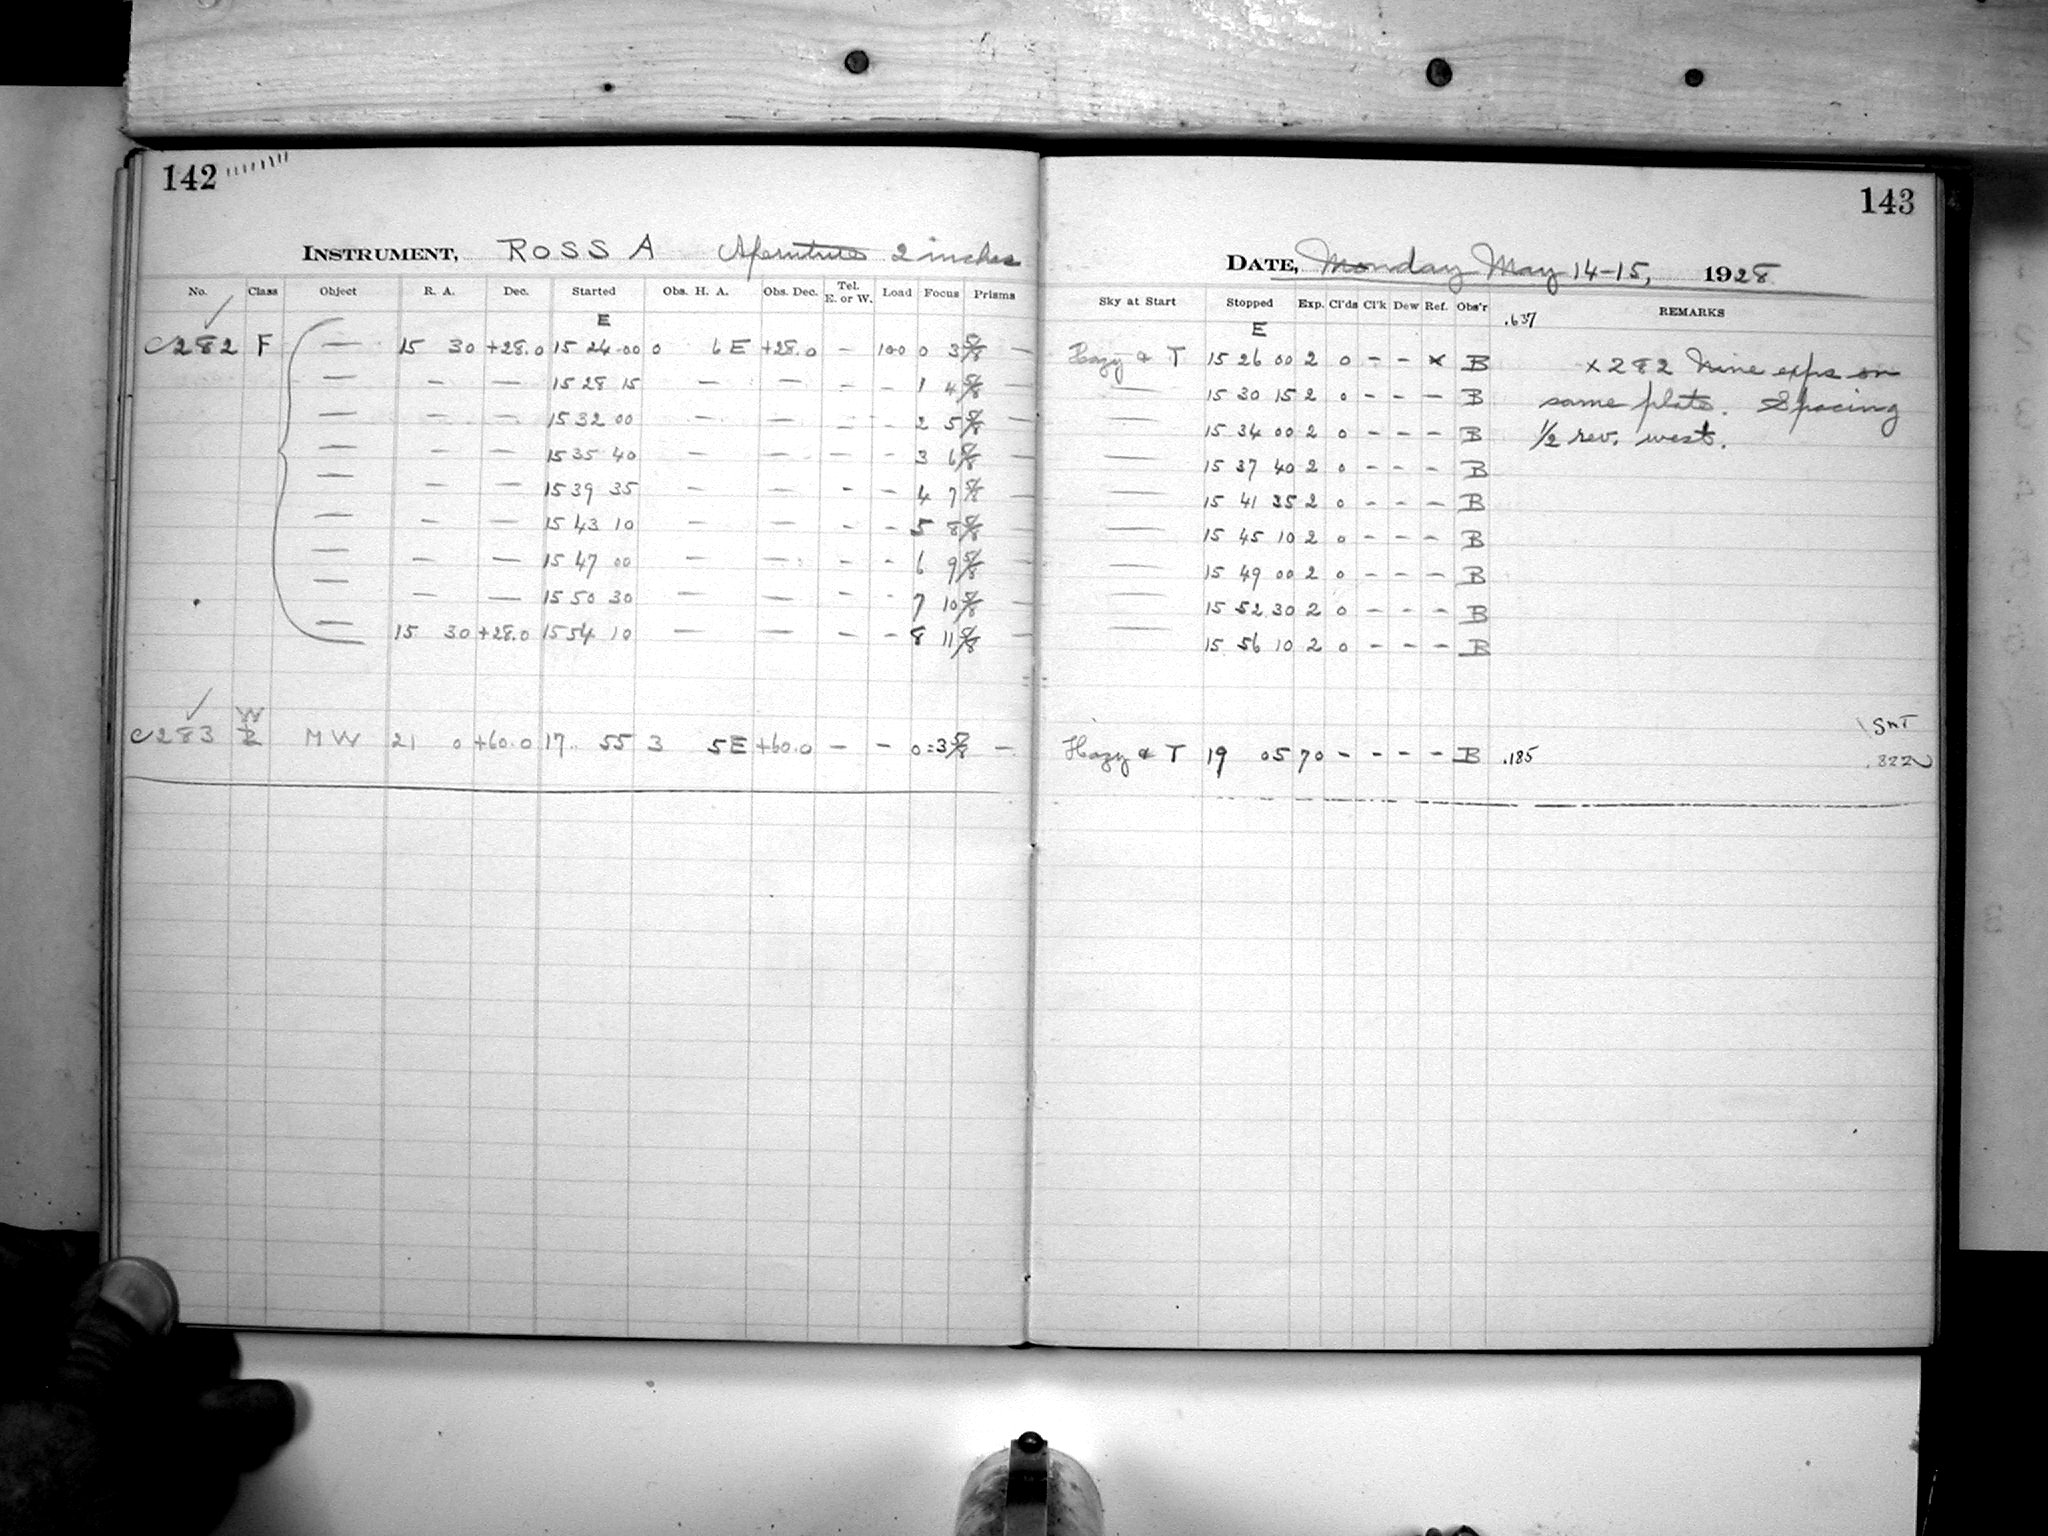 142
143
INSTRUMENT, ROSS A Aperture 2 inches
DATE, Monday May 14-15, 1928
No. Class Object R. A. Dec. Started Obs. H. A. Obs. Dec. Tel. E. or W. Load Focus Prisms
Sky at Start Stopped Exp. Cl'ds Cl'k Dew Ref. Obs'r REMARKS
E E .637
c282 F — 15 30 +28.0 15 24 00 0 6 E +28.0 – 100 0 3 5/8 — Hazy & T 15 26 00 2 0 – – x B x 282 Nine exps on
— – — 15 28 15 — — – – 1 4 5/8 — — 15 30 15 2 0 – – – B same plate. Spacing
— – — 15 32 00 — — – – 2 5 5/8 — — 15 34 00 2 0 – – – B 1/2 rev. west.
— – — 15 35 40 — — – – 3 6 5/8 — — 15 37 40 2 0 – – – B
— – — 15 39 35 — — – – 4 7 5/8 — — 15 41 35 2 0 – – – B
— – — 15 43 10 — — – – 5 8 5/8 — — 15 45 10 2 0 – – – B
— – — 15 47 00 — — – – 6 9 5/8 — — 15 49 00 2 0 – – – B
— – — 15 50 30 — — – – 7 10 5/8 — — 15 52 30 2 0 – – – B
— 15 30 +28.0 15 54 10 — — – – 8 11 5/8 — 15 56 10 2 0 – – – B
W
c283 MW 21 0 +60.0 17 55 3 5 E +60.0 – – 0=3 5/8 — Hazy & T 19 05 70 – – – – B .185 .822